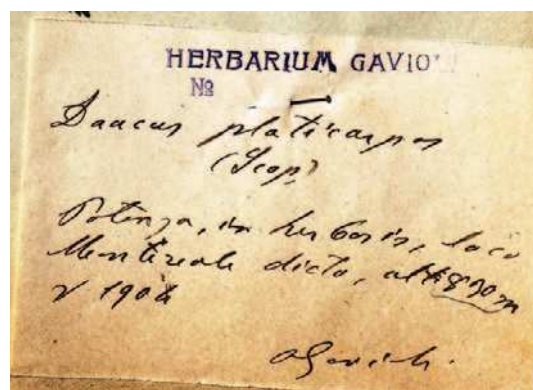 HERBARIUM GAVIO
No
Daucus platicarpos
(Scop)
Potenza, in herbosis, loco
Montereale dicto, alt
V 1904
OGavioli.